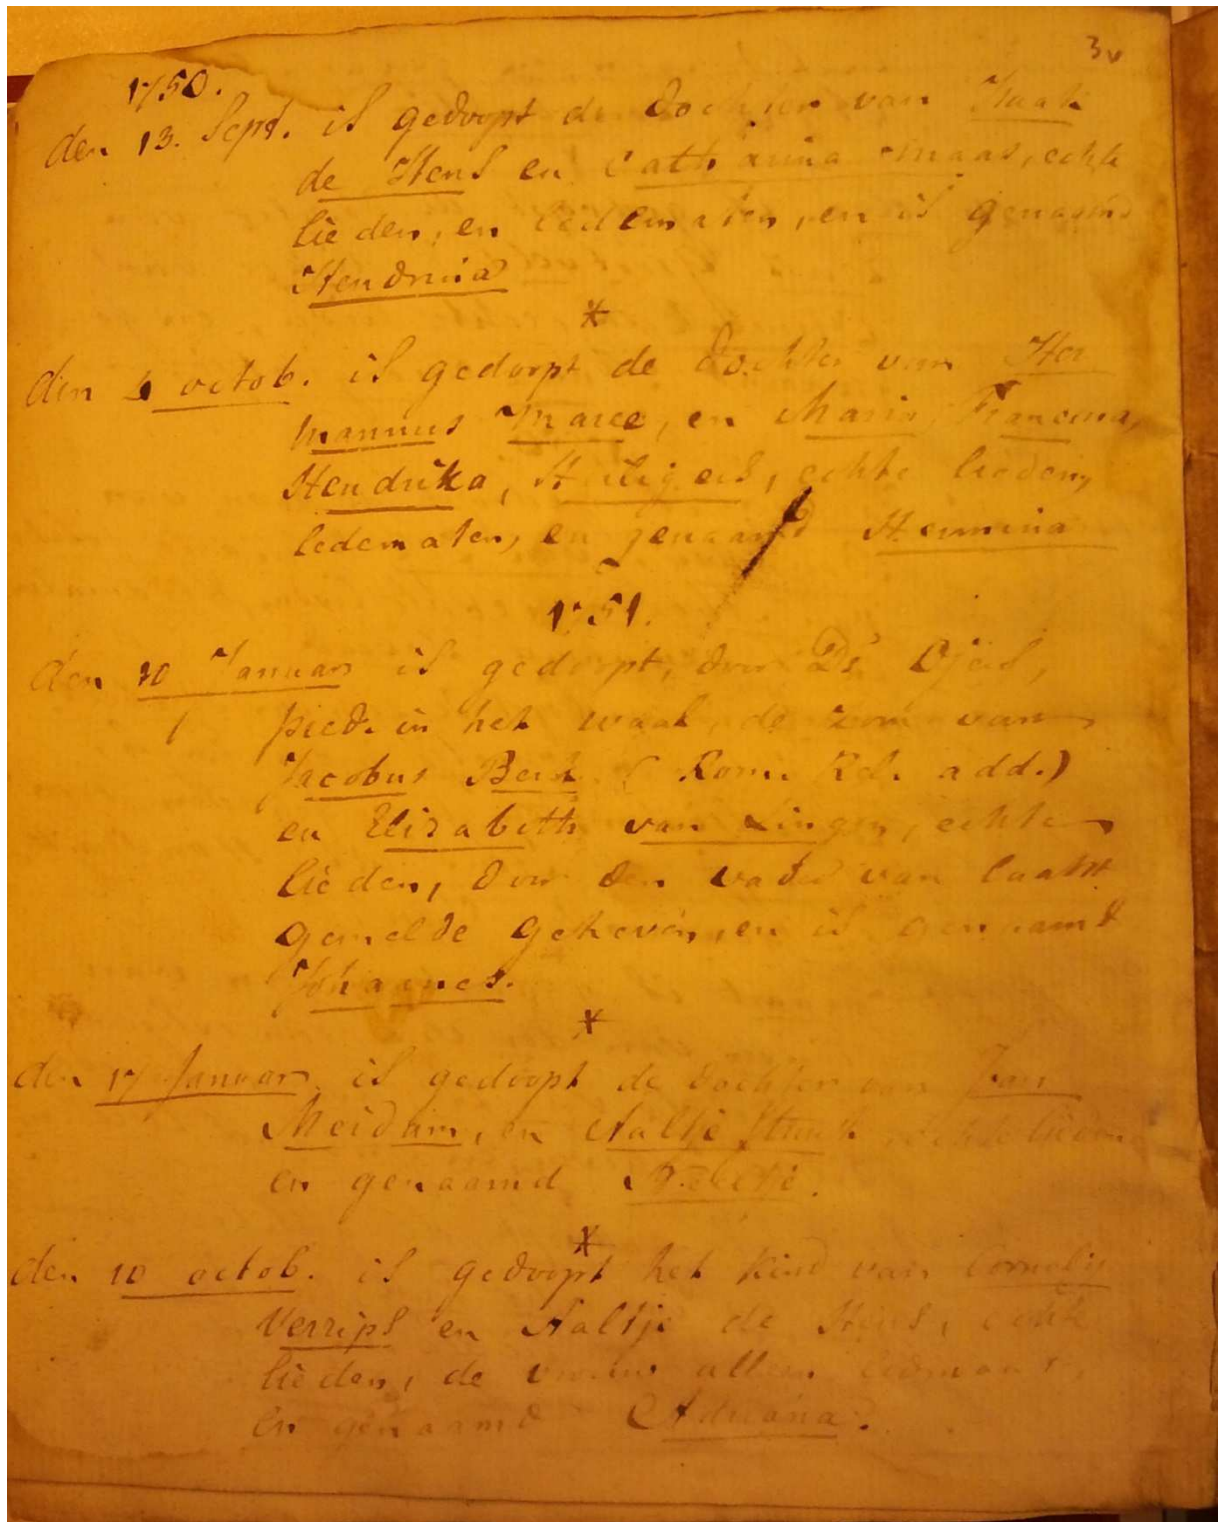 3v
1750.
den 13. Sept. is gedoopt de dochter van Isaak
de Hens en Catharina Maas, echte
lieden, en ledematen, en is genaamd
Hendrina
*
den 4 octob. is gedoopt de dochter van Her
mannus Maree, en Maria, Francina,
Hendrika, echte lieden,
ledematen, en genaamd Hermina
1751.
den 10 Januar is gedoopt, door Ds.
pred. in het waal, de zoon van
Jacobus Berk ( Rom. Rel. add.)
en Elizabeth van Lingen, echte
lieden, door den vader van laatst
gemelde geheven, en is genaamd
Johannes.
*
den 17 Januar. is gedoopt de dochter van Jan
Meidam, en Aaltje echte lieden
en genaamd
*
den 10 octob. is gedoopt het kind van Cornelis
Verrips en Aaltje de Hens, echte
lieden, de vrouw alleen ledemaat,
en genaamd Adriana.